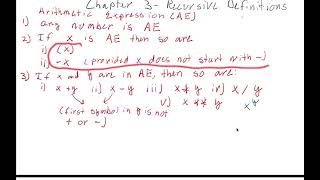 Chapter 3- Recursive Definitions
Arithmetic Expression (AE)
1) any number is AE
2) If x is AE then so are
i) (x)
ii) -x (provided x does not start with -)
3) If x and y are in AE, then so are:
i) x+y ii) x - y iii) x * y iv) x / y
v) x ** y x^y
(first symbol in y is not
+ or -)